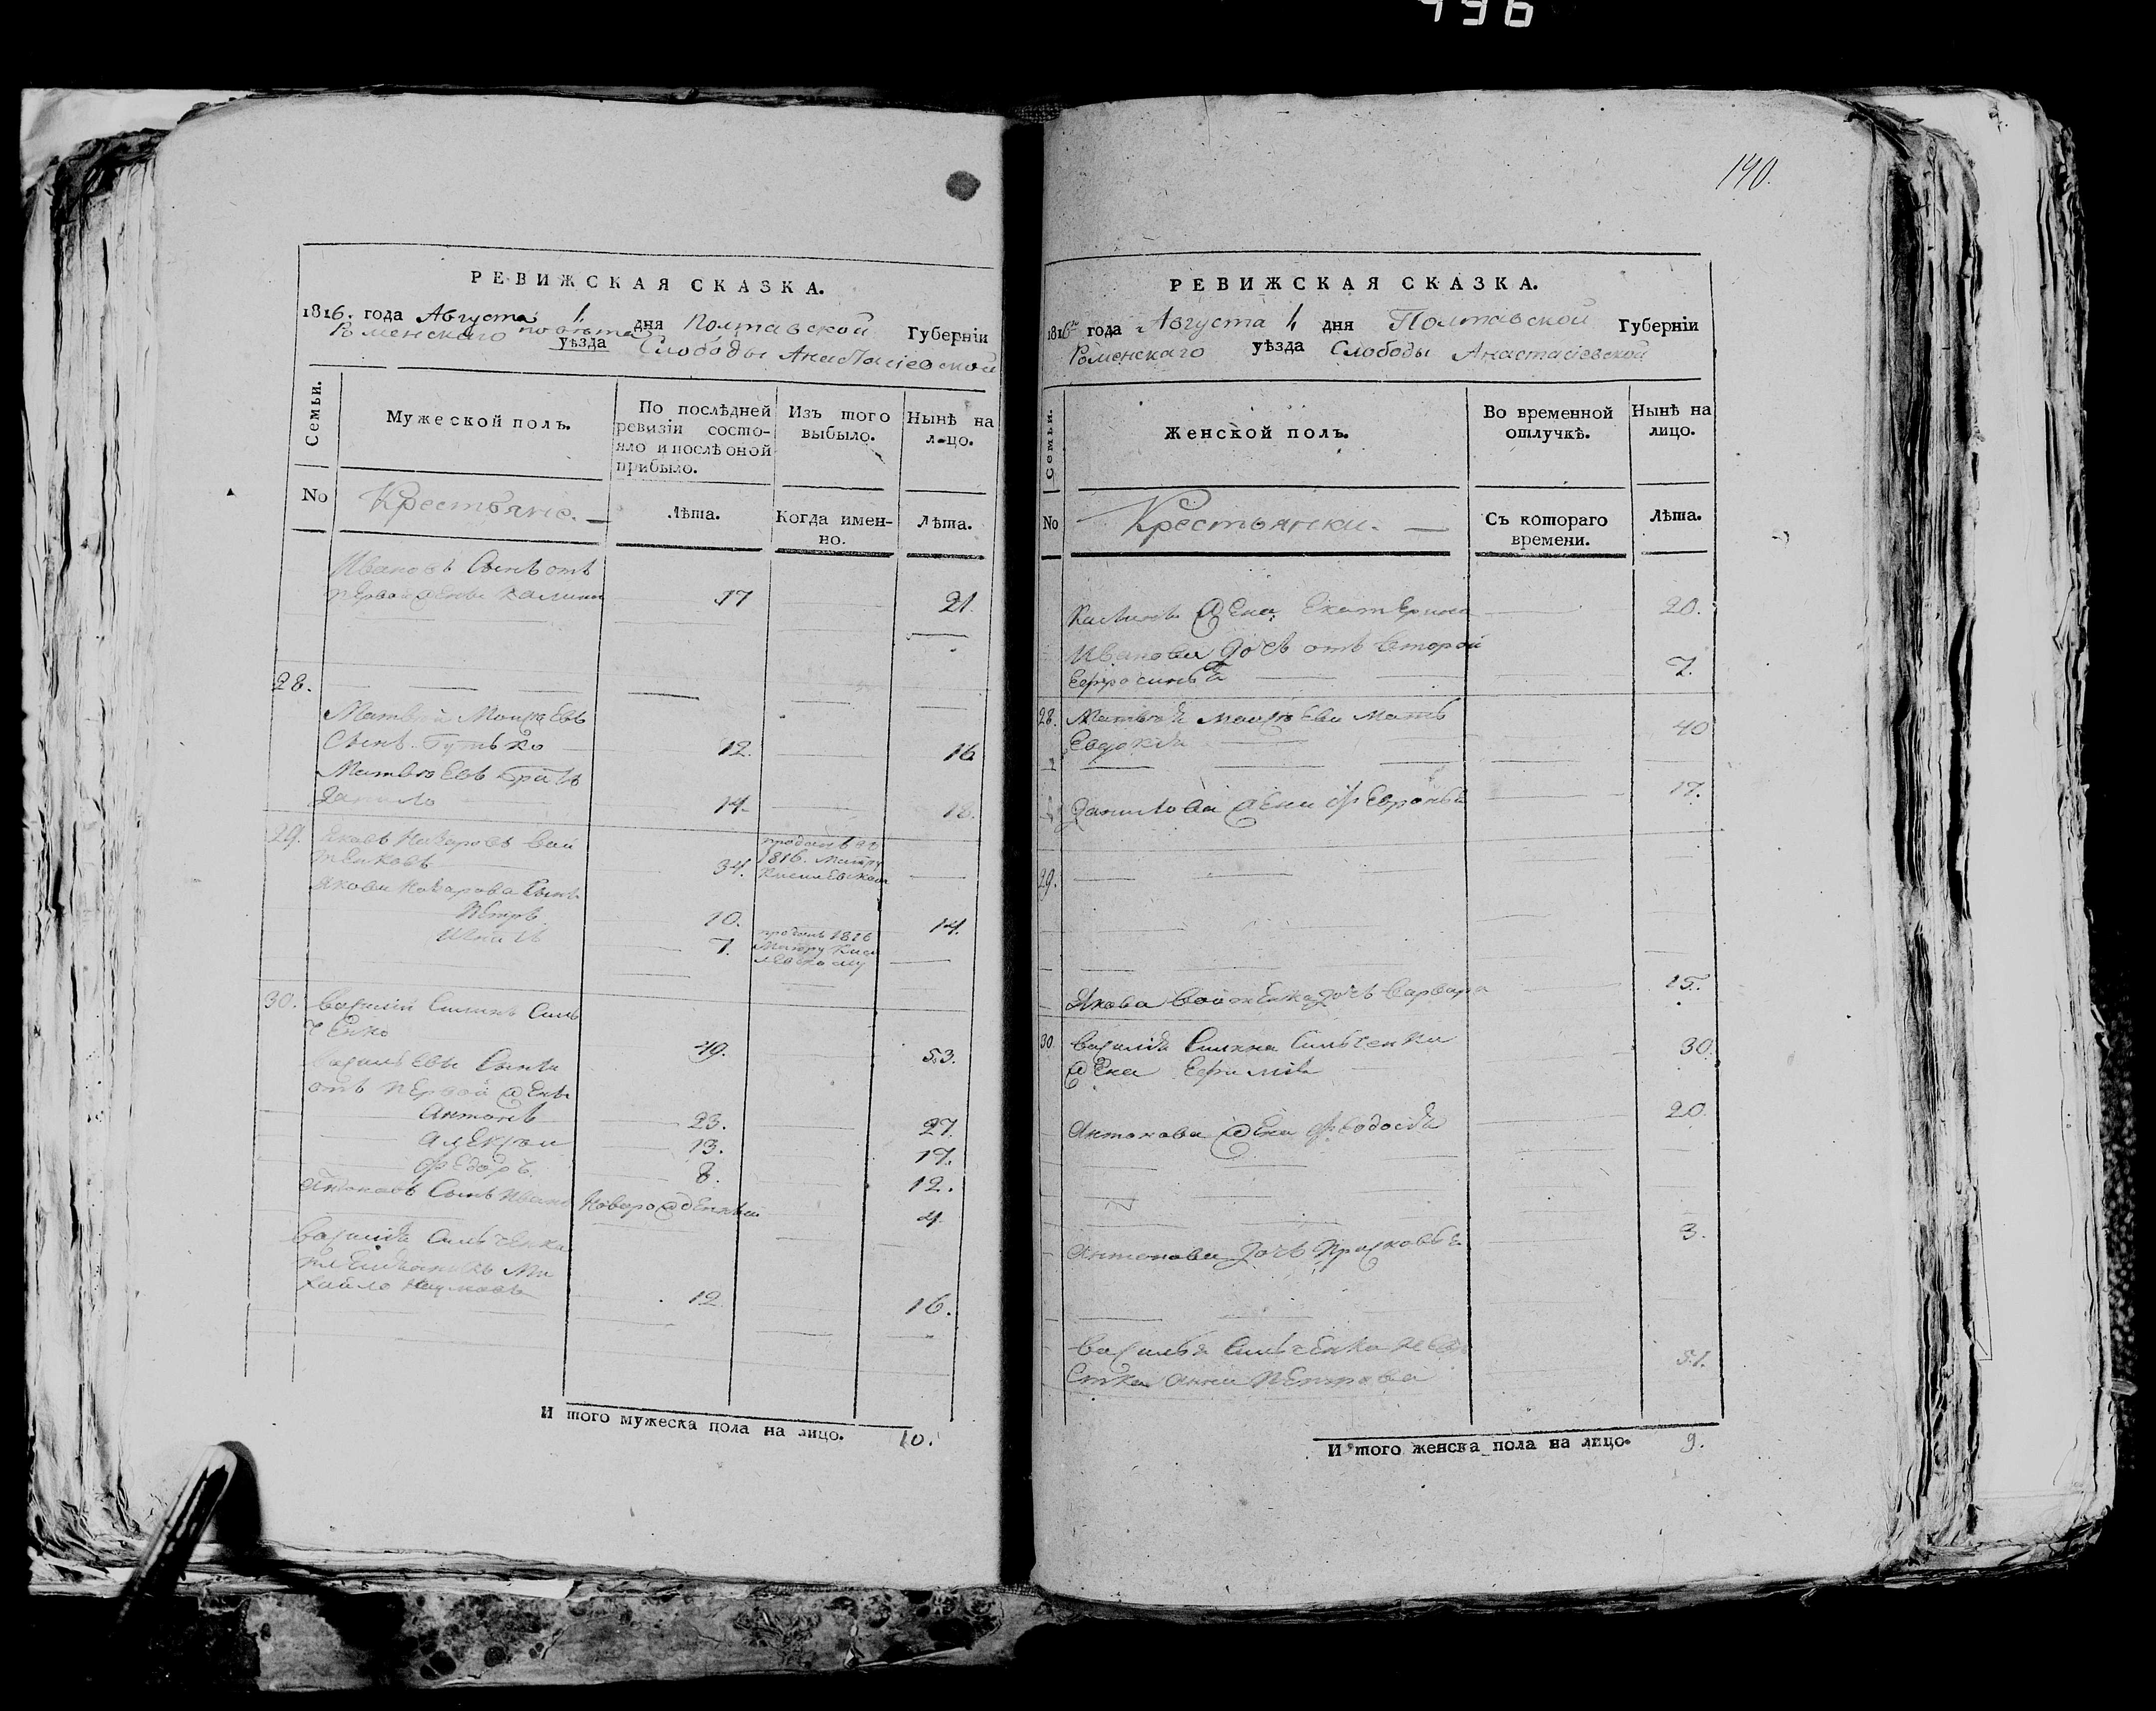 496
РЕВИЖСКАЯ СКАЗКА.
1816. года Августа 1, дня Полтавской Губерніи
Роменскаго повѣта уѣзда Слободы Анастасіевской
Семьи.
Мужеской полъ.
По послѣдней ревизіи состояло и послѣ оной прибыло.
Изъ того выбыло.
Нынѣ на лицо.
No
Крестьяне.
Лѣта.
Когда именно.
Лѣта.
Ивановъ Сынъ отъ
первой жены Калина 17 21.
28.
Матвѣй Моисѣевъ
Сынъ Гутько 12. 16
Матвѣевъ братъ
Данило 14. 18.
29. Яковъ Назаровъ Вой
тенковъ 34. проданъ въ
1816. Маиору
Киселевскому
Якова Назарова Сынъ
Петръ 10. 14.
Игнатъ 7. проданъ 1816
Маиору Кисе
левскому
30. Василій Силинъ Силь
ченко 49. 53.
Васильевы Сыны
отъ первой жены
Антонъ 23. 27.
Алексѣй 13. 17.
Федоръ 8. 12.
Антоновъ Сынъ Иванъ Новорожденный 4.
Василія Сильченка
племянникъ Ми
хайло Наумовъ 12 16.
И того мужеска пола на лицо. 10.
140.
РЕВИЖСКАЯ СКАЗКА.
1816го года Августа 1, дня Полтавской Губерніи
Роменскаго уѣзда Слободы Анастасіевской
Семьи.
Женской полъ.
Во временной отлучкѣ.
Нынѣ на лицо.
No
Крестьянки.
Съ котораго времени.
Лѣта.
Калины жена Екатерина 20.
Иванова дочь отъ второй
Ефросинья 7.
28. Матвѣя Моисѣева мать
Евдокія 40
Данилова жена Февронья 17.
29.
Якова Войтенка дочь Варвара 15.
30. Василія Силина Сильченка
жена Ефимія 30.
Антонова жена Феодосія 20.
Антонова дочь Прасковья 3.
Василья Сильченка невѣ
стка Анна Петрова 51.
И того женска пола на лицо. 9.